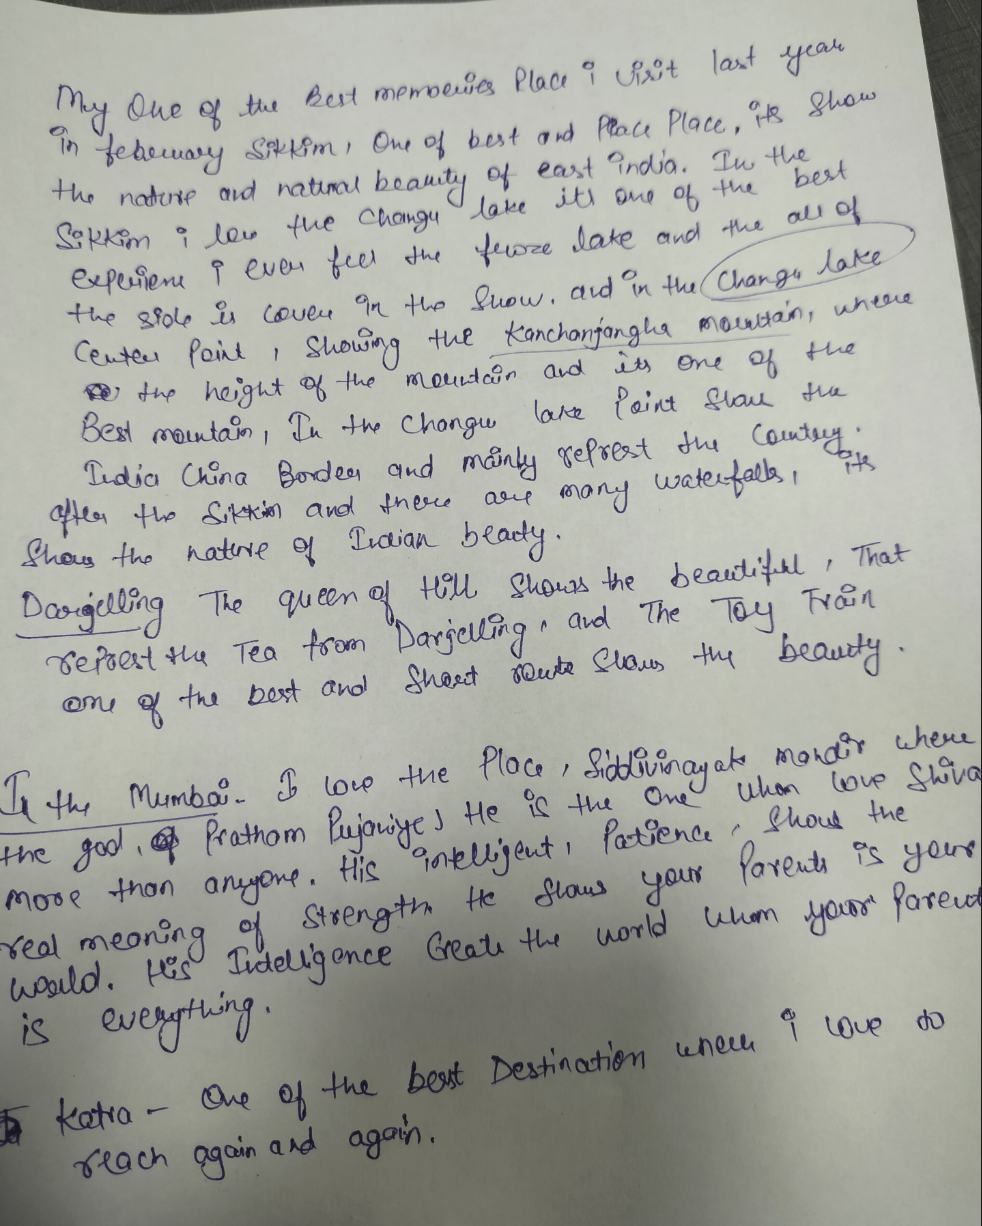 My One of the Best memoeries Place i visit last year
in feberuary Sikkim, One of best and Place Place, its Show
the nature and natural beauty of east india. In the
Sikkim i love the Changu lake its one of the best
experience i ever feel the froze lake and the all of
the side is cover in the Snow. and in the Changu lake
Center Point, Showing the Kanchanjangha mountain, where
the height of the mountain and its one of the
Best mountain, In the Changu lake Point Show the
India China Border and mainly represt the Country.
after the Sikkim and there are many waterfalls, its
Show the nature of Indian beauty.
Darjelling The queen of Hill Shows the beautiful, That
represt the Tea from Darjelling, and The Toy Train
one of the best and Short route Shows the beauty.
In the Mumbai- I love the Place, Siddivinayak mandir where
the god, of Pratham Pujaniye, He is the One whom love Shiva
more than anyone. His intelligent, Patience, Shows the
real meaning of Strength He Shows your Parents is your
world. His Intelligence Create the world whom your Parent
is everything.
Katra - One of the best Destination where i love to
reach again and again.